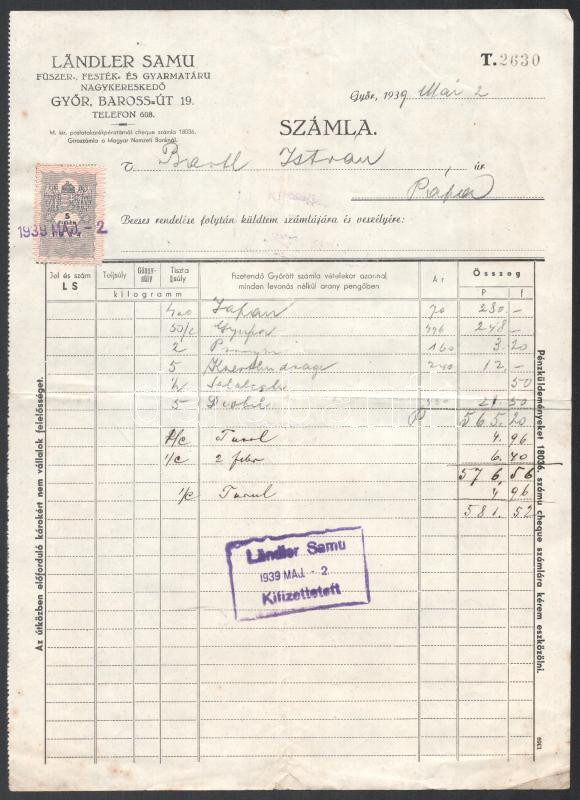 LÄNDLER SAMU
FÜSZER-, FESTÉK- ÉS GYARMATÁRU
NAGYKERESKEDŐ
GYŐR, BAROSS-ÚT 19.
TELEFON 608.
M. kir. postatakarékpénztárnál cheque számla 18036.
Girószámla a Magyar Nemzeti Banknál.
T. 2630
Győr, 1939 Máj 2
SZÁMLA.
T. István úr
Pápa
Becses rendelése folytán küldtem számlájára és veszélyére:
1939 MÁJ. - 2
Jel és szám
L S
Teljsúly
Göngysúly
Tiszta súly
kilogramm
Fizetendő Győrött számla vételekor azonnal
minden levonás nélkül arany pengőben
Ár
Összeg
P f
400 70 280.-
50/c 248.-
2 160 3.20
5 240 12.-
50
5 21.50
P 565.20
1/c Turul 4.96
1/c 2 6.40
576.56
1/c Turul 4.96
581.52
Ländler Samu
1939 MÁJ. - 2.
Kifizettetett
Az útközben előforduló károkért nem vállalok felelősséget.
Pénzküldeményeket 18036. számu cheque számlára kérem eszközölni.